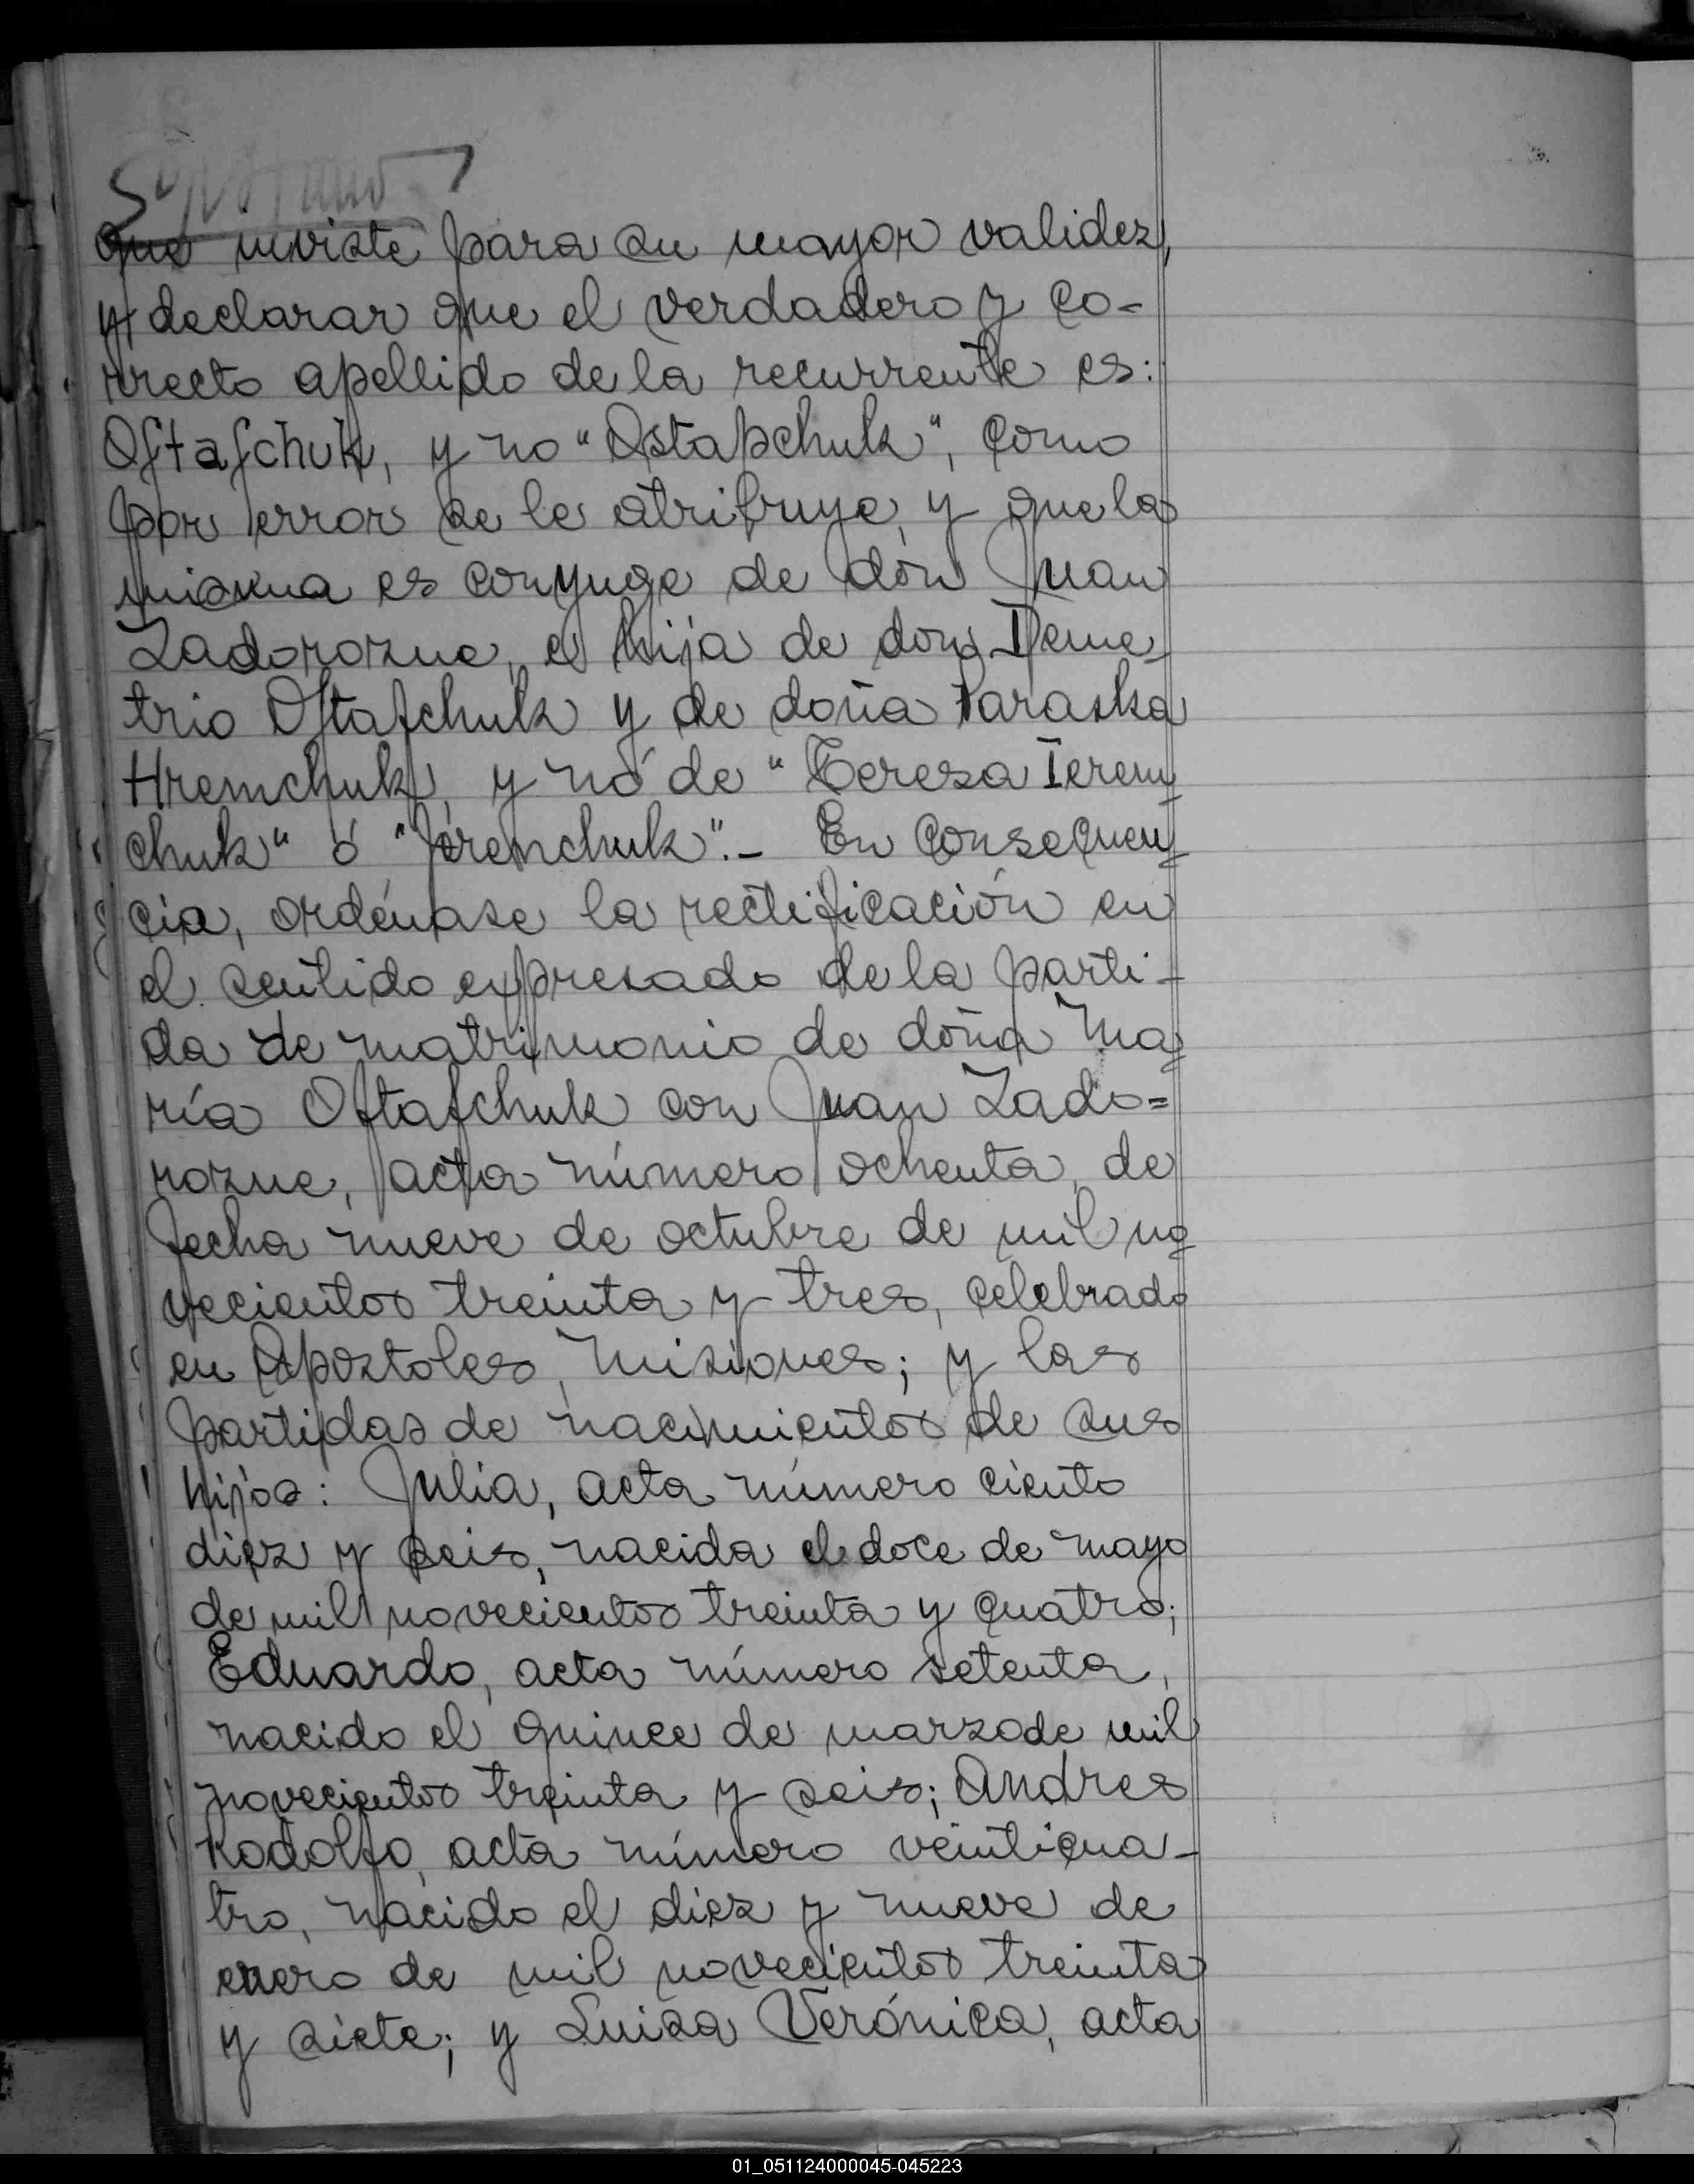 que inviste para su mayor validez,
y declarar que el verdadero y co-
rrecto apellido de la recurrente es:
Oftafchuk, y no "Ostapchuk", como
por error se le atribuye, y que la
misma es conyuge de don Juan
Zadorozne, e hija de don Deme-
trio Oftafchuk y de doña Paraska
Hremchuk, y nó de "Teresa Ierem
chuk" ó "Jremchuk".- En consecuen
cia, ordénase la rectificación en
el sentido expresado de la parti-
da de matrimonio de doña Ma
ría Oftafchuk con Juan Zado=
rozne, acta número ochenta, de
fecha nueve de octubre de mil no
vecientos treinta y tres, celebrado
en Apostoles, Misiones; y las
partidas de nacimientos de sus
hijos: Julia, acta número ciento
diez y seis, nacida el doce de mayo
de mil novecientos treinta y cuatro;
Eduardo, acta número setenta,
nacido el quince de marzo de mil
novecientos treinta y seis; Andres
Rodolfo, acta número veinticua-
tro, nacido el diez y nueve de
enero de mil novecientos treinta
y siete; y Luisa Verónica, acta
01_051124000045-045223